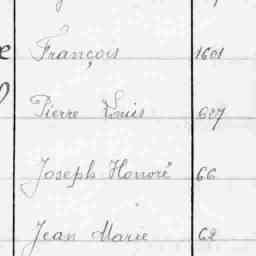 François 1601
Pierre Louis 627
Joseph Honoré 66
Jean Marie 62